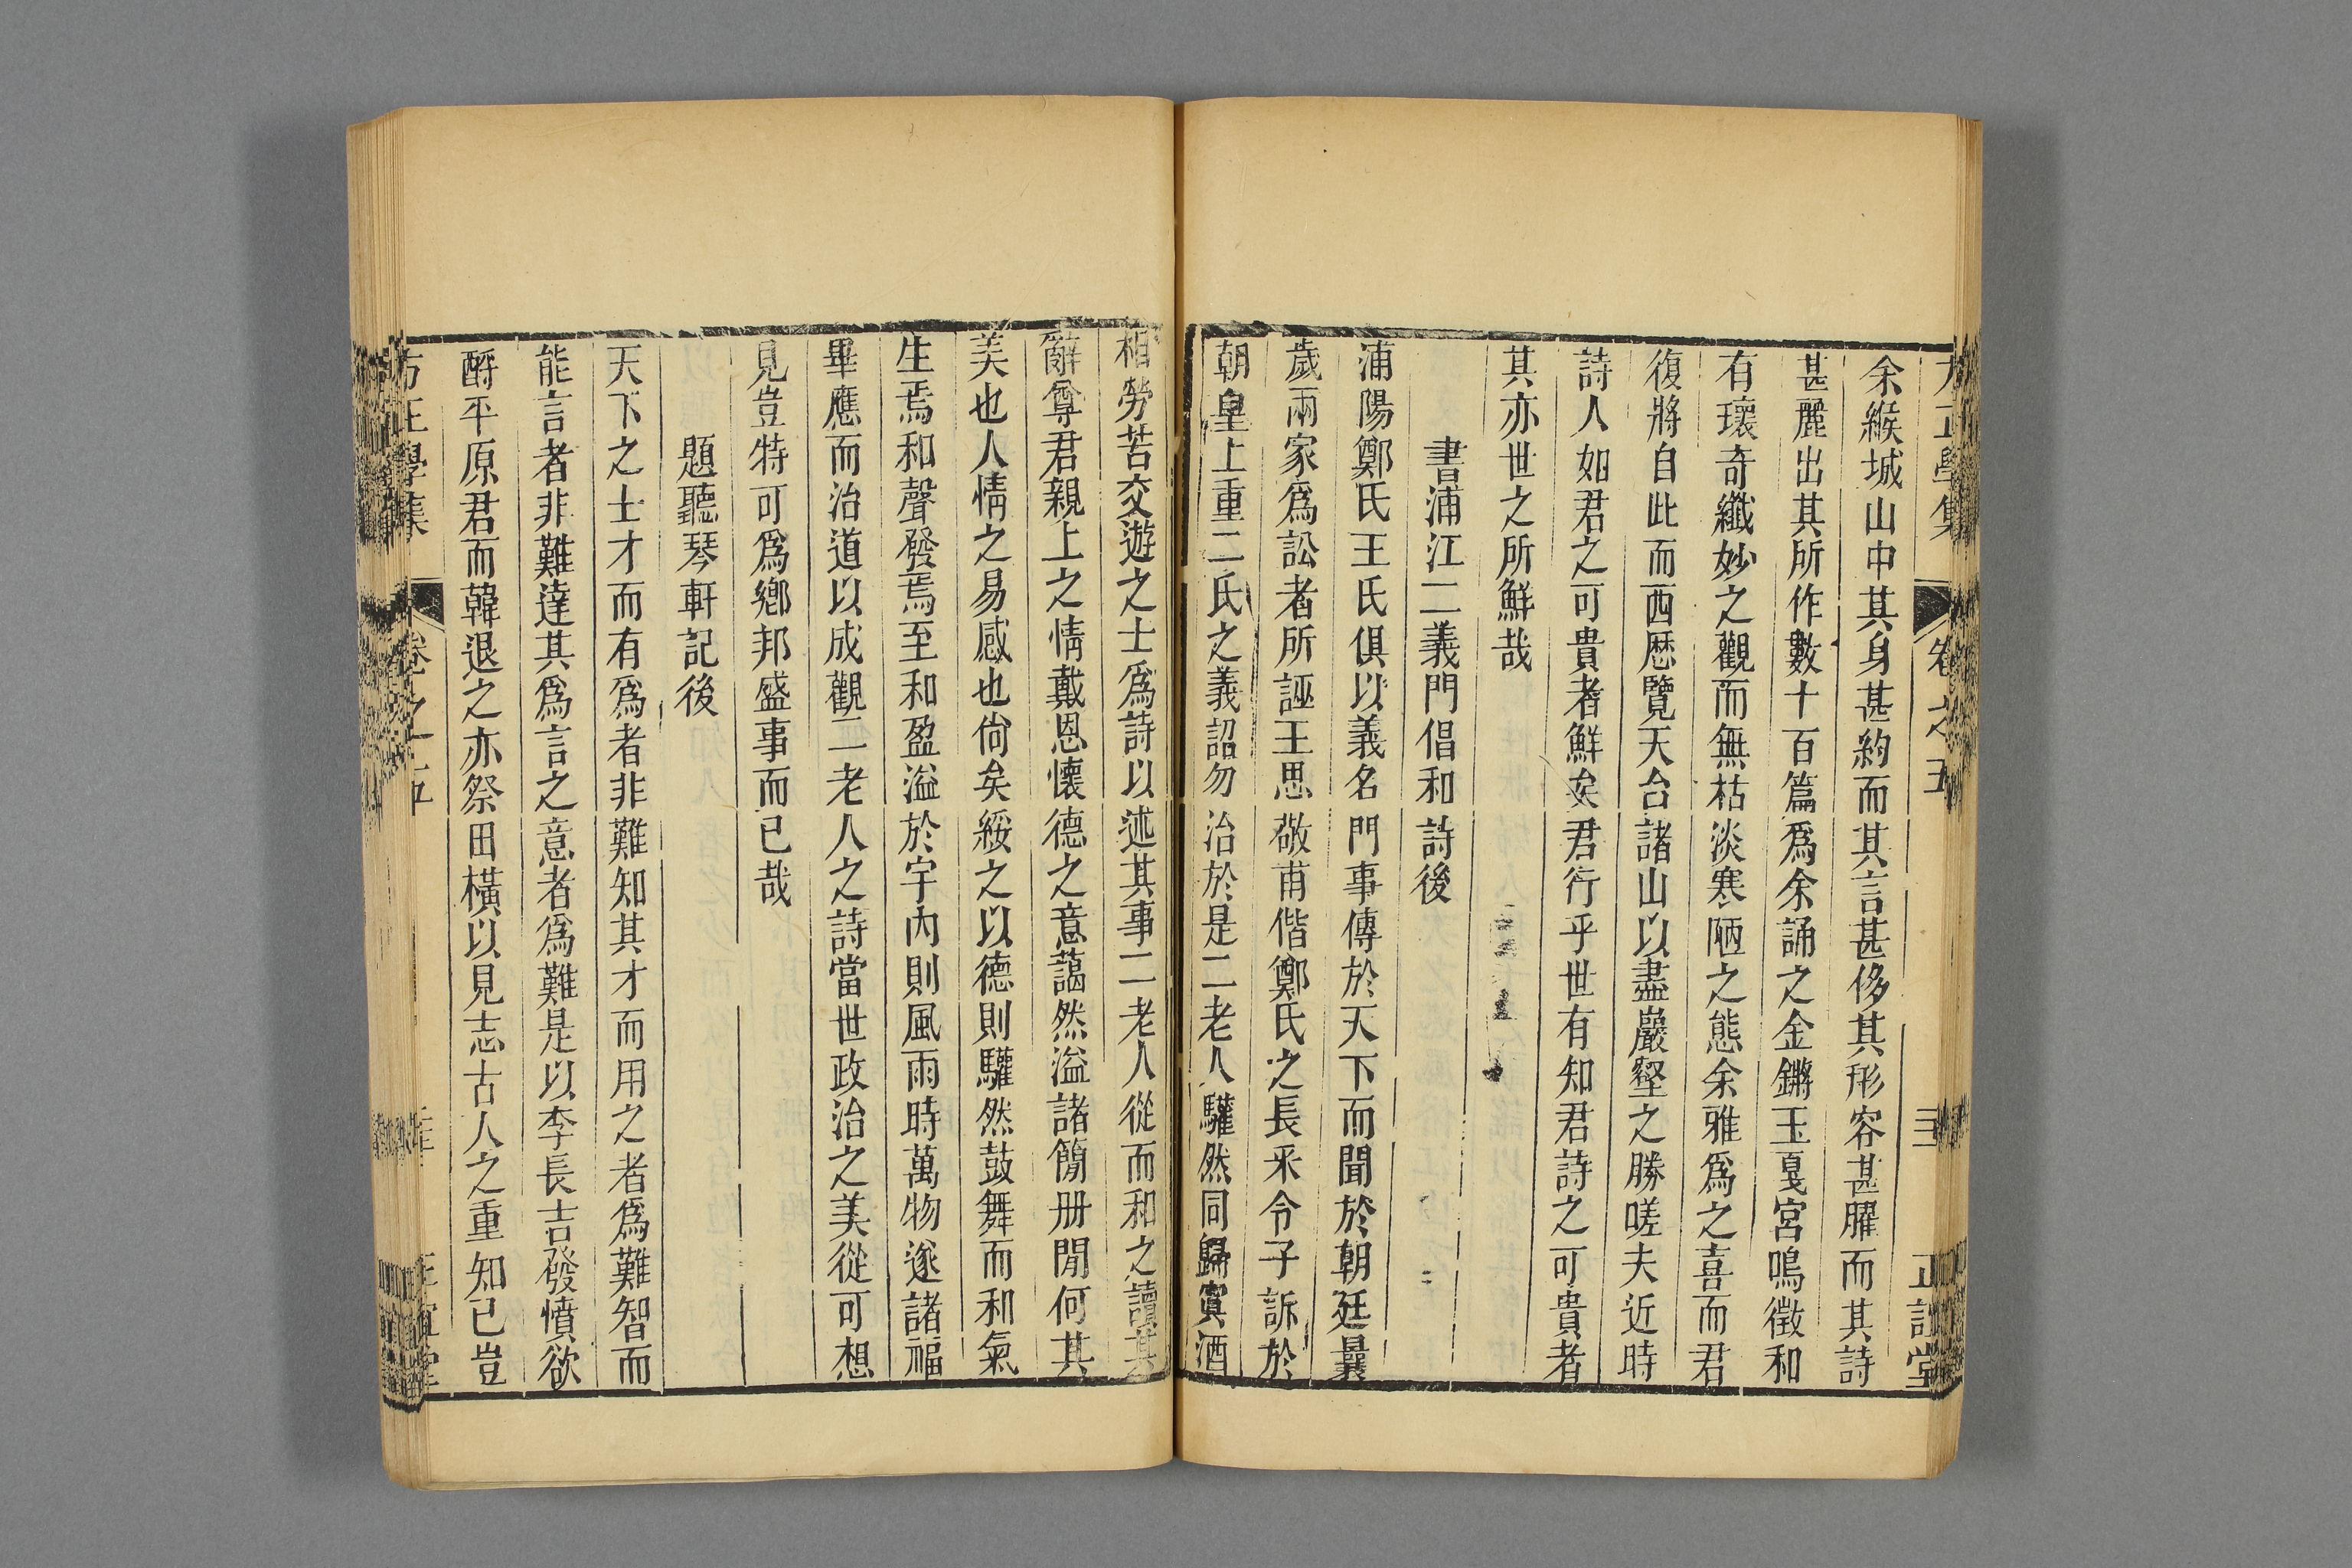 方正學集 卷之五 正誼堂
余緱城山中其身甚約而其言甚侈其形容甚臞而其詩
甚麗出其所作數十百篇爲余誦之金鏘玉戛宮鳴徵和
有瓌奇纖妙之觀而無枯淡寒陋之態余雅爲之喜而君
復將自此而西歷覽天台諸山以盡巖壑之勝嗟夫近時
詩人如君之可貴者鮮矣君行乎世有知君詩之可貴者
其亦世之所鮮哉
書浦江二義門倡和詩後
浦陽鄭氏王氏俱以義名門事傳於天下而聞於朝廷曩
歲兩家爲訟者所誣王思敬甫偕鄭氏之長釆令子訴於
朝皇上重二氏之義詔勿治於是二老人驩然同歸賔酒
相勞苦交遊之士爲詩以述其事二老人從而和之讀其
辭尊君親上之情戴恩懷德之意藹然溢諸簡册閒何其
美也人情之易感也尙矣綏之以德則驩然鼓舞而和氣
生焉和聲發焉至和盈溢於宇內則風雨時萬物遂諸福
畢應而治道以成觀二老人之詩當世政治之美從可想
見豈特可爲鄕邦盛事而已哉
題聽琴軒記後
天下之士才而有爲者非難知其才而用之者爲難智而
能言者非難達其爲言之意者爲難是以李長吉發憤欲
酹平原君而韓退之亦祭田橫以見志古人之重知已豈
方正學集 卷之五